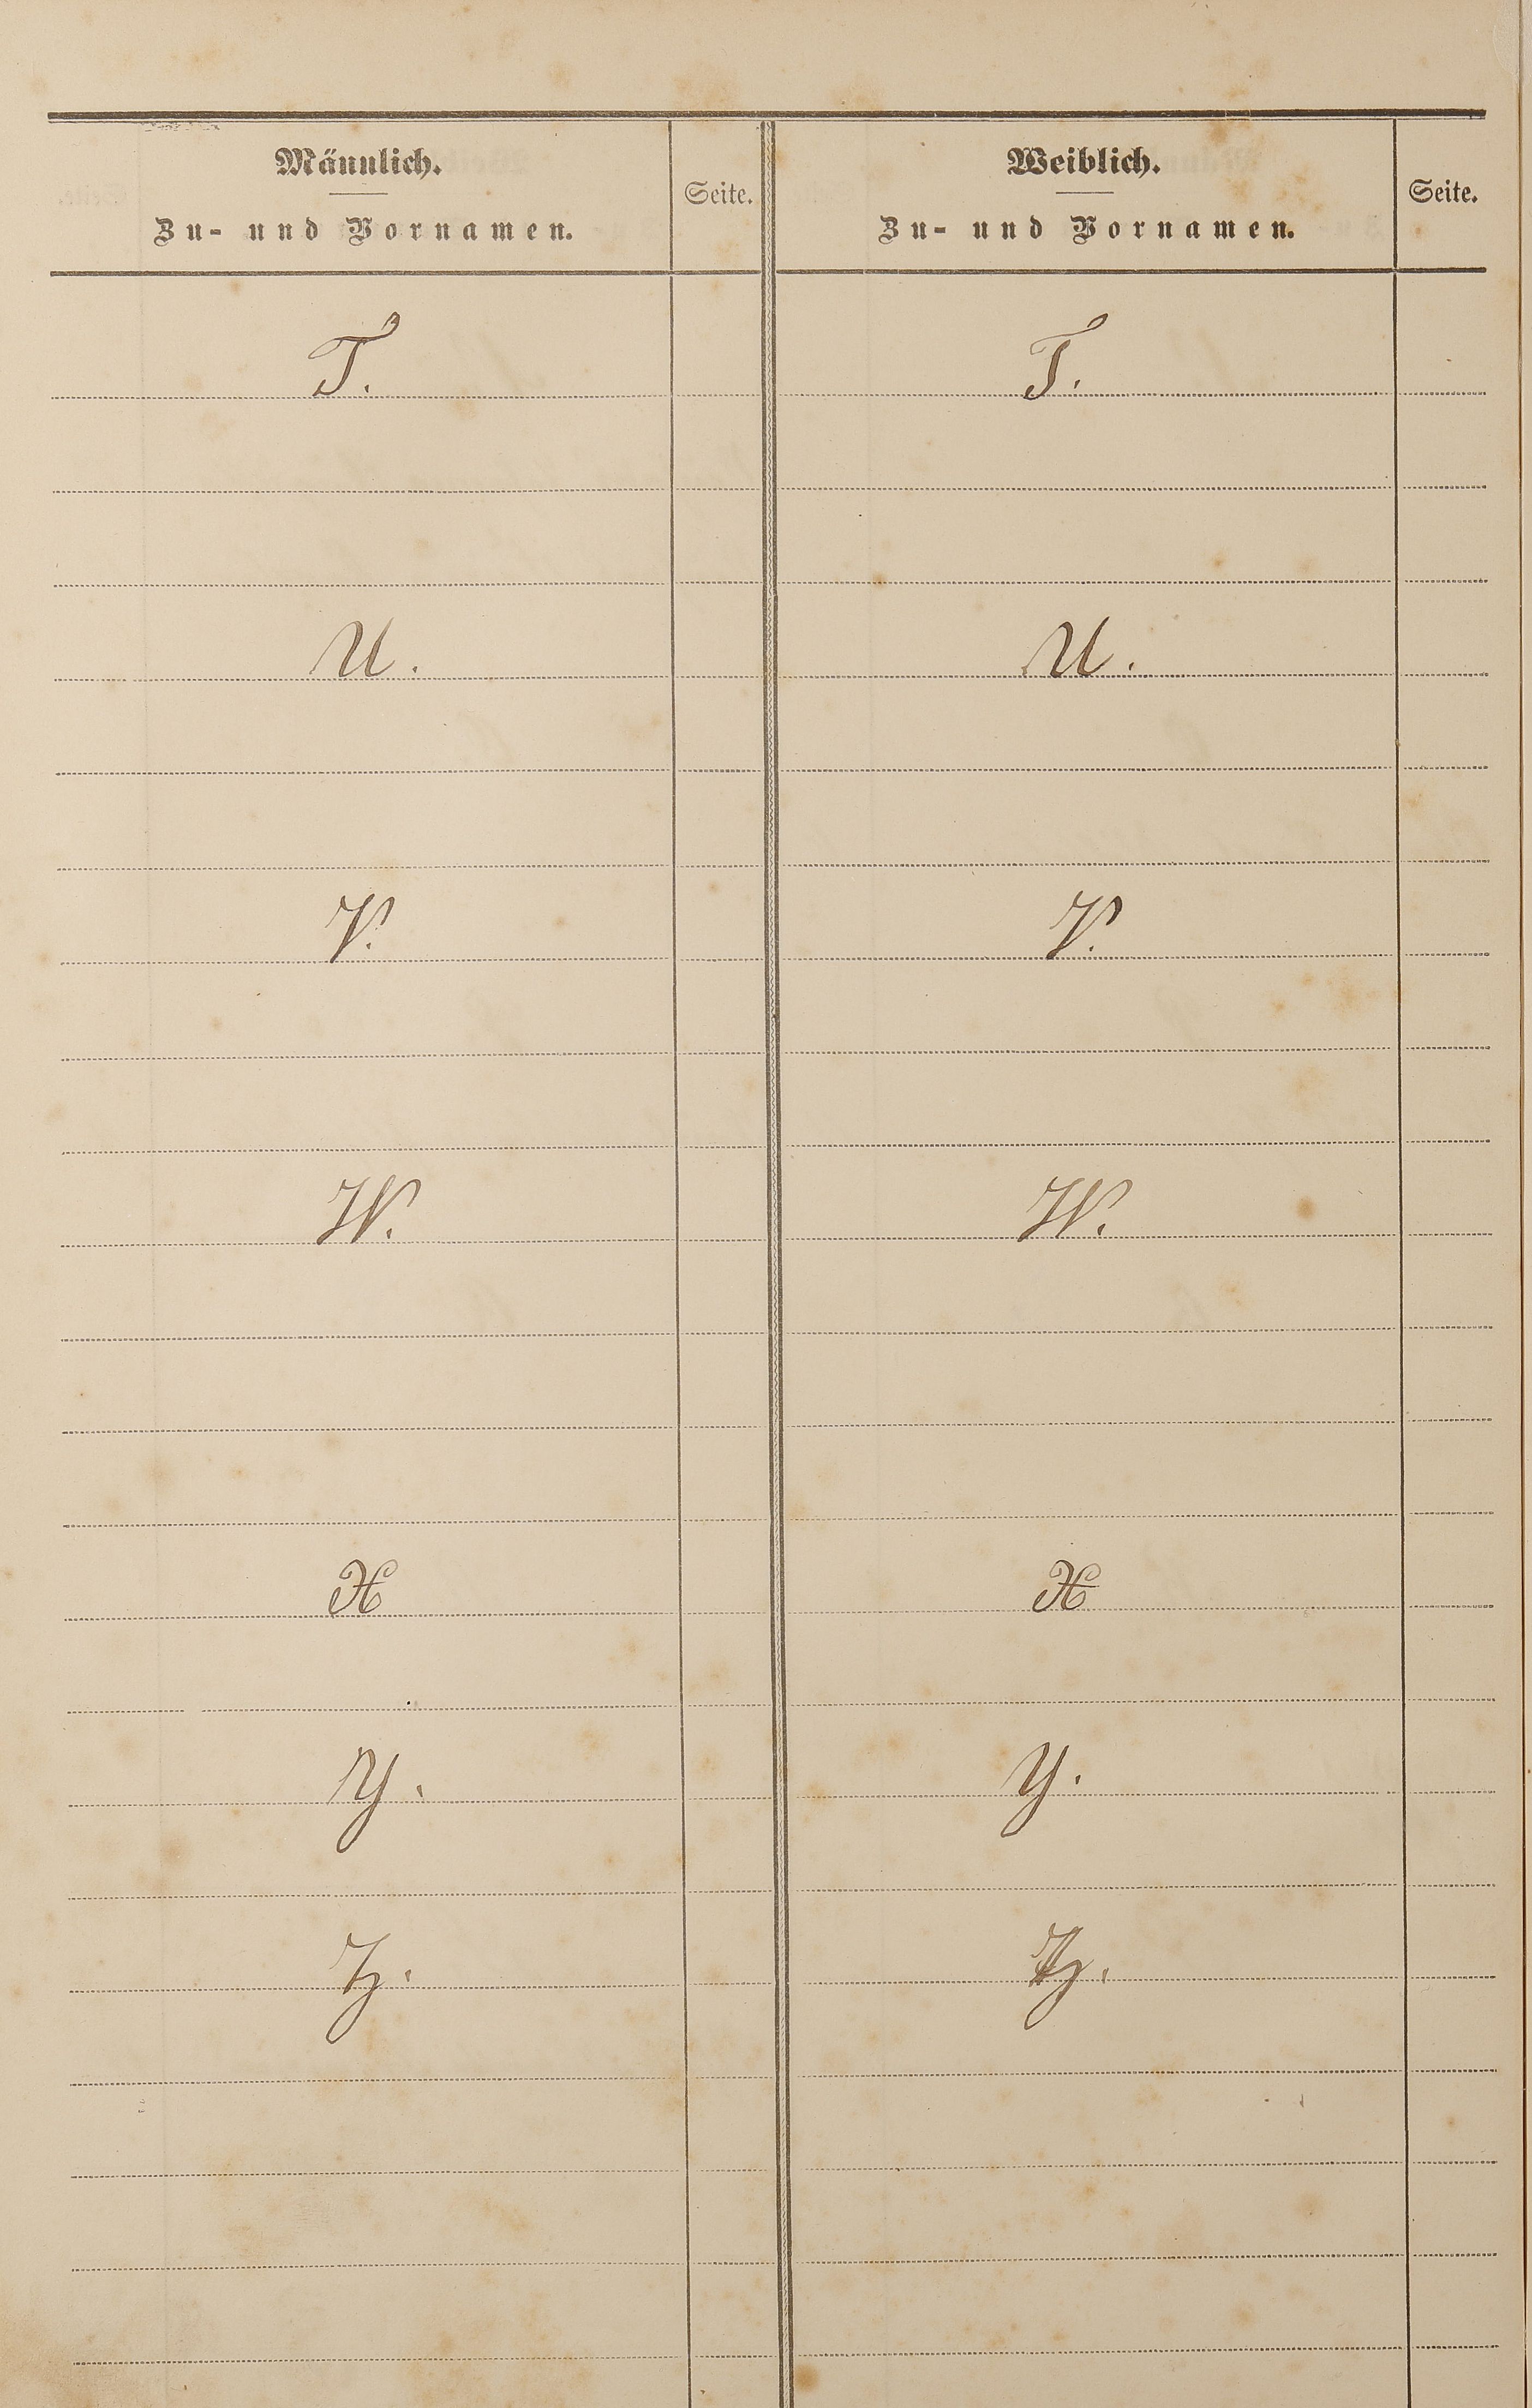 Männlich. Weiblich.
Zu- und Vornamen. Seite. Zu- und Vornamen. Seite.
T. T.
U. U.
V. V.
W. W.
X X
Y. Y.
Z. Z.